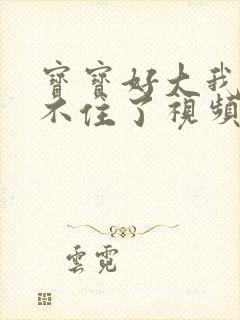 寶寶好大我
不住了視頻
雲霓